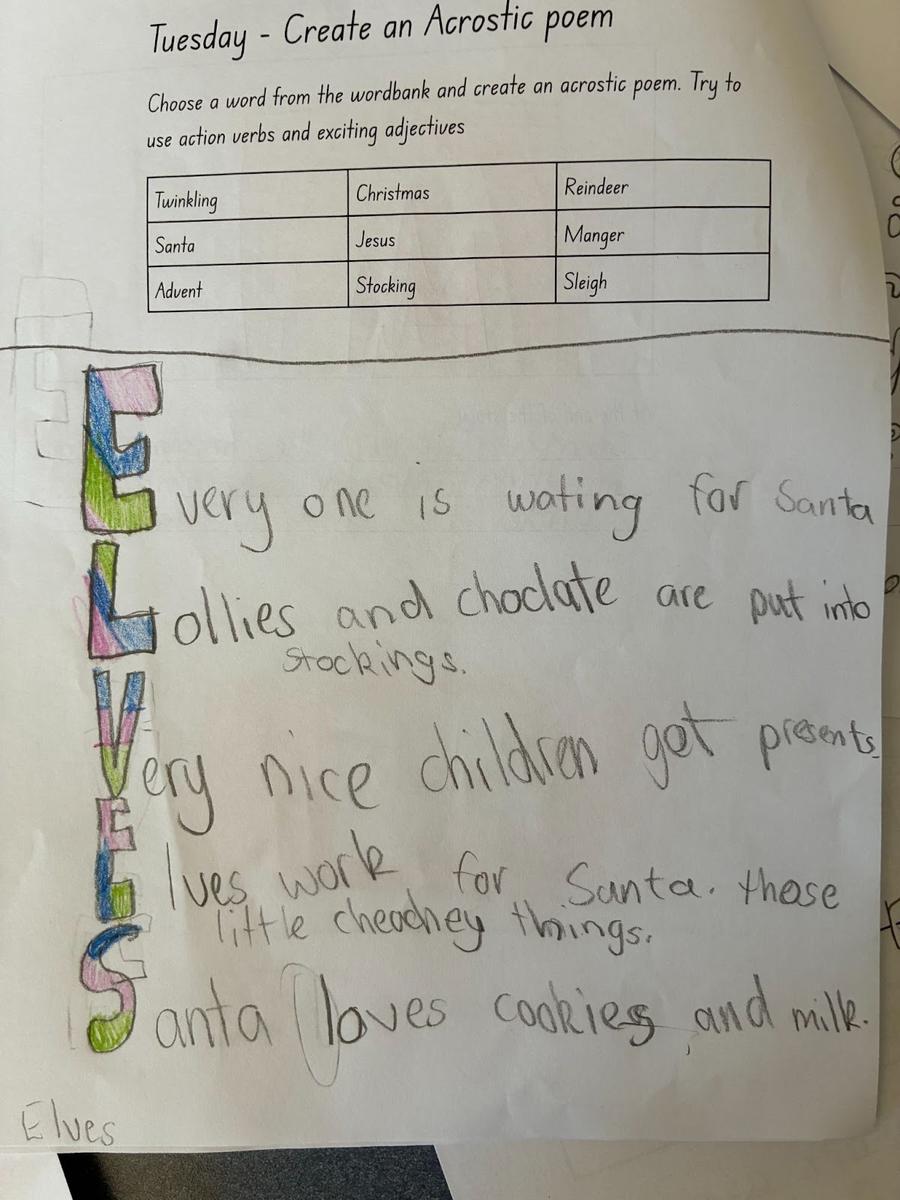 Tuesday - Create an Acrostic poem
Choose a word from the wordbank and create an acrostic poem. Try to
use action verbs and exciting adjectives
Twinkling Christmas Reindeer
Santa Jesus Manger
Advent Stocking Sleigh
Every one is wating for Santa
Lollies and choclate are put into
stockings.
Very nice children get presents
Elves work for Santa. those
little cheachey things.
Santa loves cookies and milk.
Elves